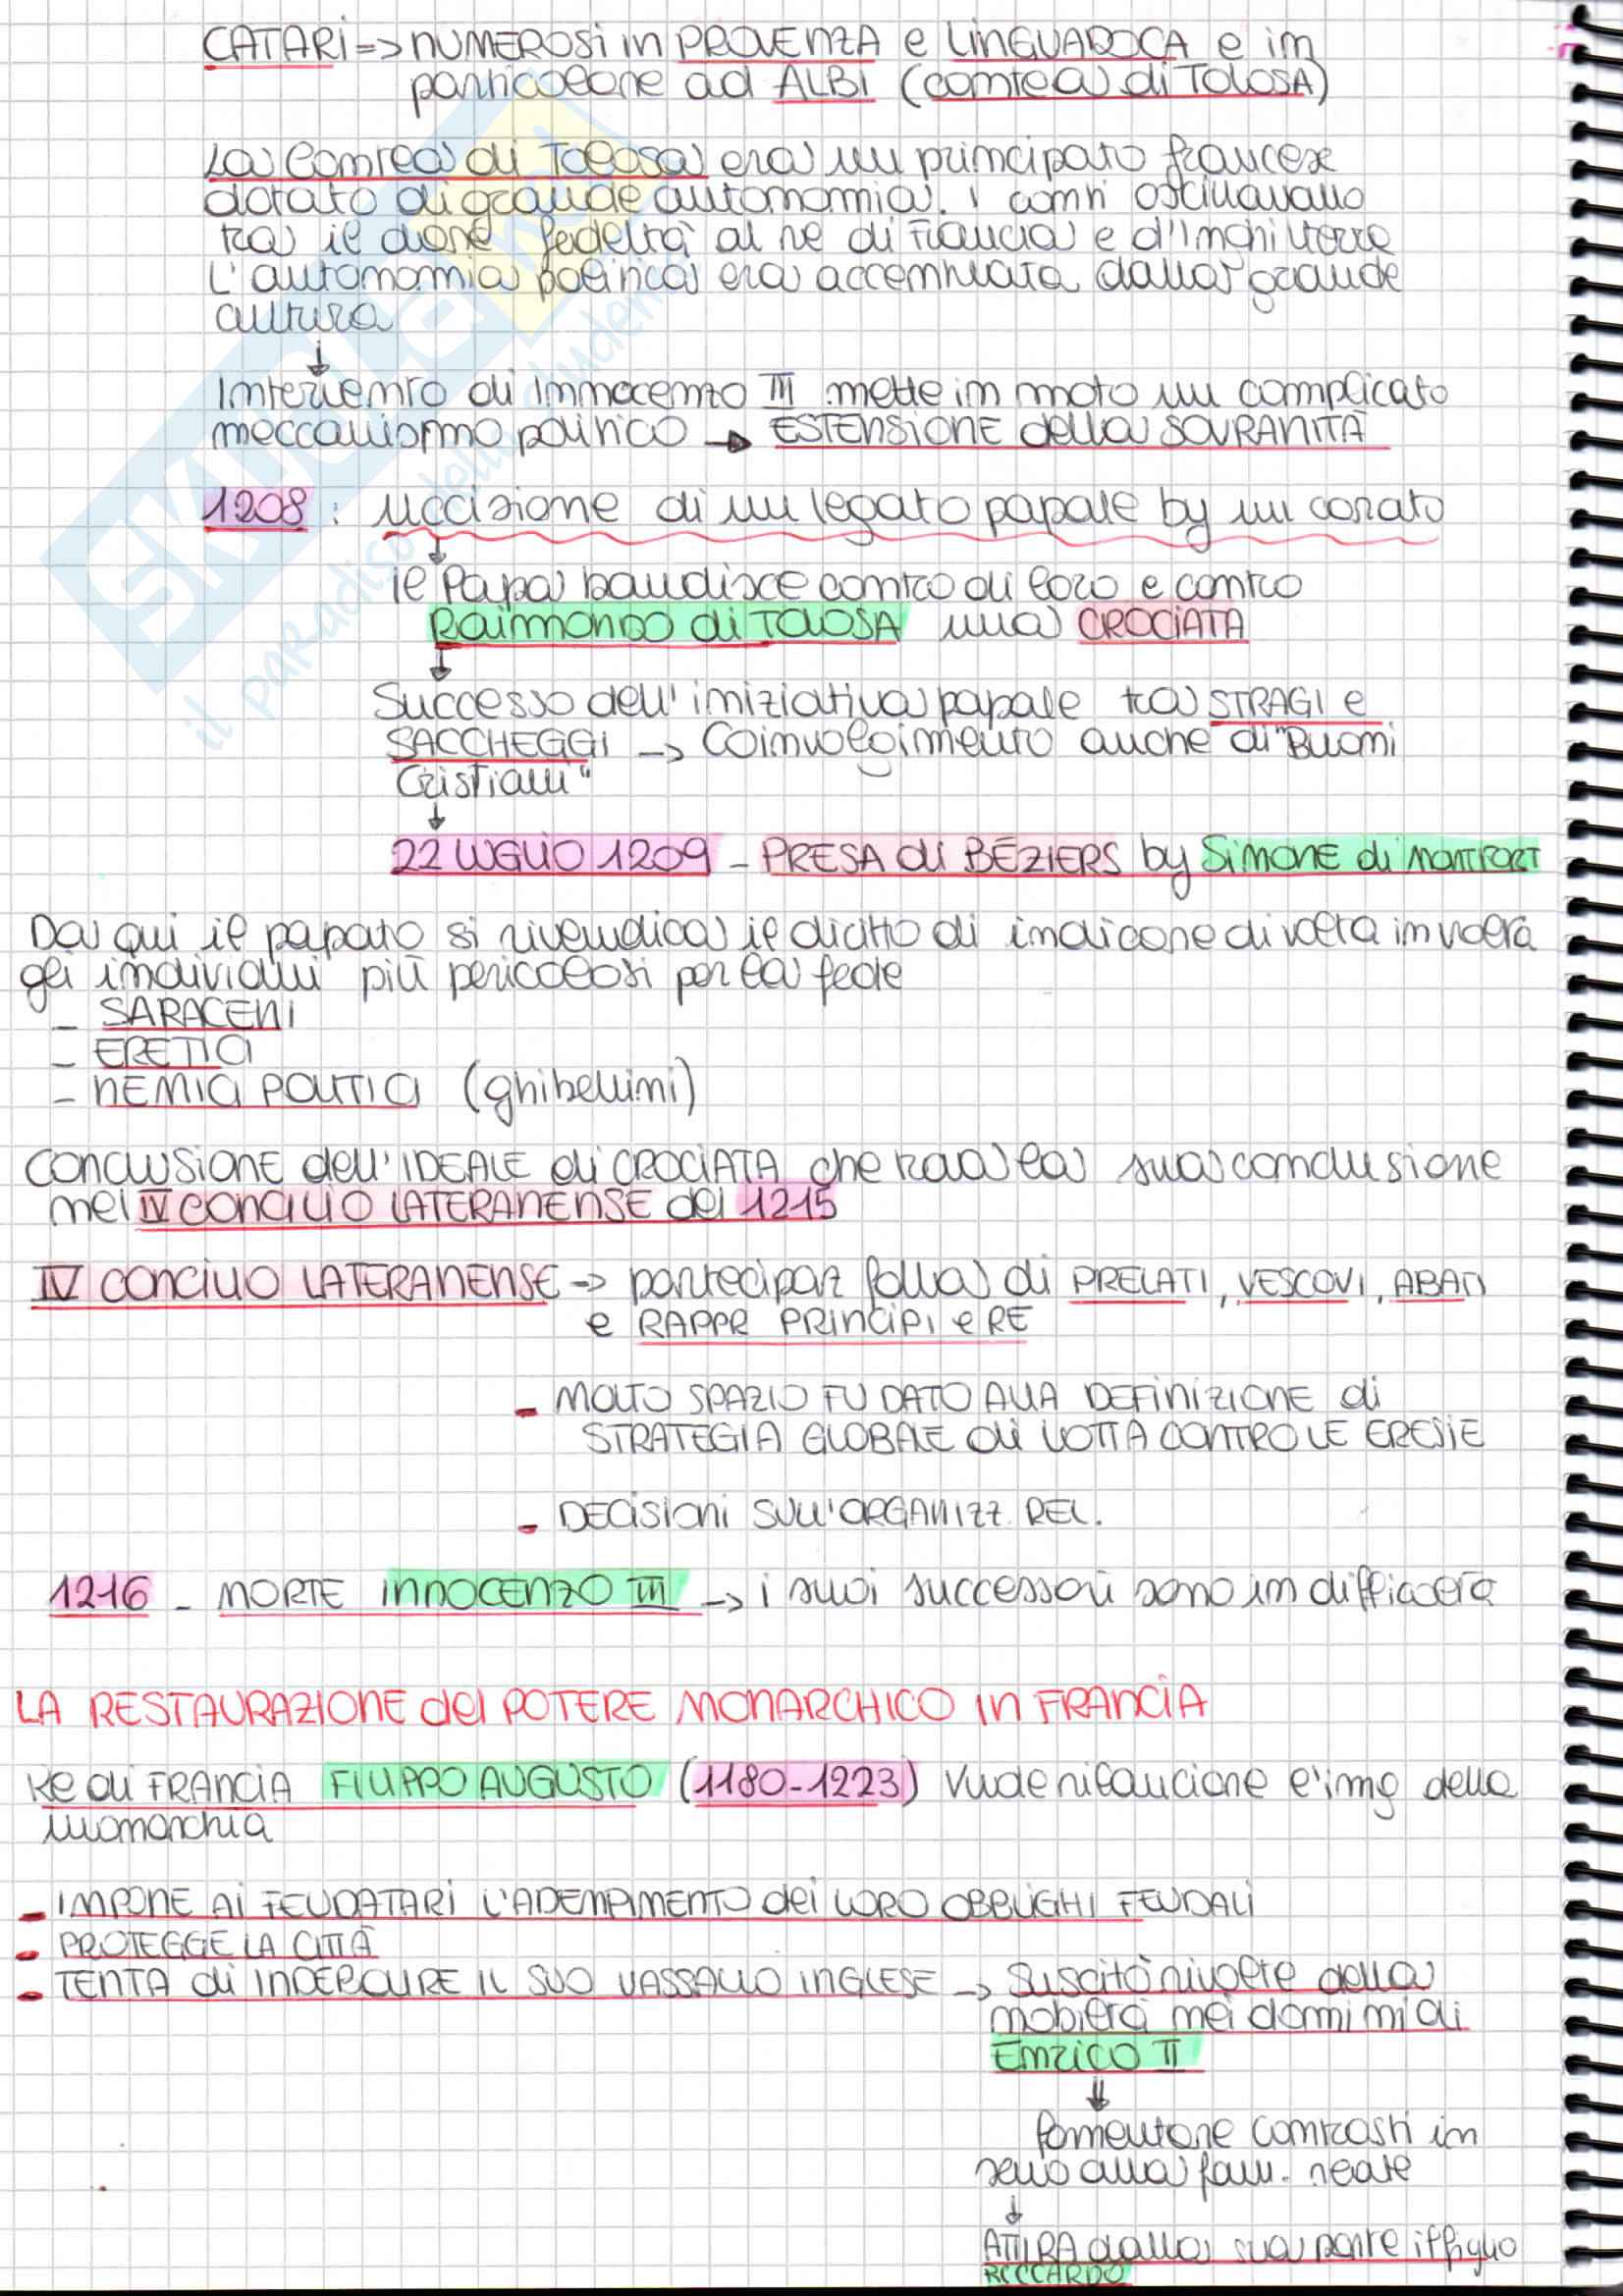 CATARI => NUMEROSI in PROVENZA e LINGUADOCA e in
particolare ad ALBI (contea di TOLOSA)
La Contea di Tolosa era un principato francese
dotato di grande autonomia. I conti oscillavano
tra il dare fedeltà al re di Francia e d'Inghilterra
L'autonomia politica era accentuata dalla grande
cultura
↓
Intervento di Innocenzo III mette in moto un complicato
meccanismo politico → ESTENSIONE della SOVRANITÀ
1208: uccisione di un legato papale by un cataro
↓
il Papa bandisce contro di loro e contro
Raimondo di TOLOSA una CROCIATA
↓
Successo dell'iniziativa papale tra STRAGI e
SACCHEGGI → Coinvolgimento anche di "Buoni
Cristiani"
↓
22 LUGLIO 1209 - PRESA di BÉZIERS by Simone di MONTFORT
Da qui il papato si rivendica il diritto di indicare di volta in volta
gli individui più pericolosi per la fede
- SARACENI
- ERETICI
- NEMICI POLITICI (ghibellini)
CONCLUSIONE dell'IDEALE di CROCIATA che trova la sua conclusione
nel IV CONCILIO LATERANENSE del 1215
IV CONCILIO LATERANENSE → partecipaz folla di PRELATI, VESCOVI, ABATI
e RAPPR PRINCIPI e RE
- MOLTO SPAZIO FU DATO ALLA DEFINIZIONE di
STRATEGIA GLOBALE di LOTTA CONTRO LE ERESIE
- DECISIONI SULL'ORGANIZZ. REL.
1216 - MORTE INNOCENZO III → i suoi successori sono in difficoltà
LA RESTAURAZIONE del POTERE MONARCHICO in FRANCIA
Re di FRANCIA FILIPPO AUGUSTO (1180-1223) vuole rilanciare l'img della
monarchia
- IMPONE AI FEUDATARI L'ADEMPIMENTO dei LORO OBBLIGHI FEUDALI
- PROTEGGE LA CITTÀ
- TENTA di INDEBOLIRE IL SUO VASSALLO INGLESE → Suscitò rivolte della
nobiltà nei domini di
Enrico II
⇓
fomentare contrasti in
seno alla fam. reale
↓
ATTIRA dalla sua parte il figlio
RICCARDO
SKUOLA
il paradiso dello studente